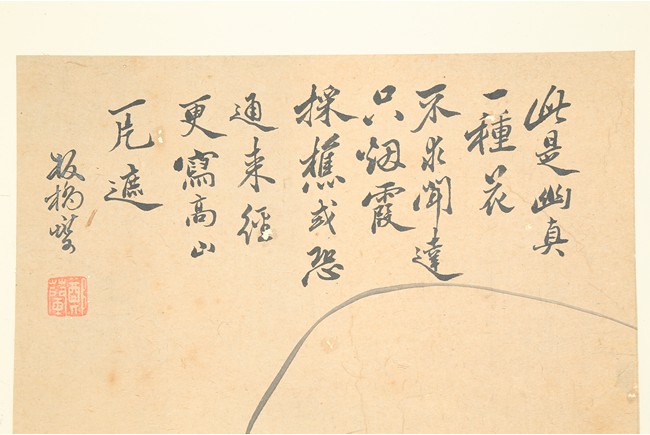 此是幽真
一種花
不求聞達
只烟霞
採樵或恐
通来徑
更寫高山
一片遮
板橋燮